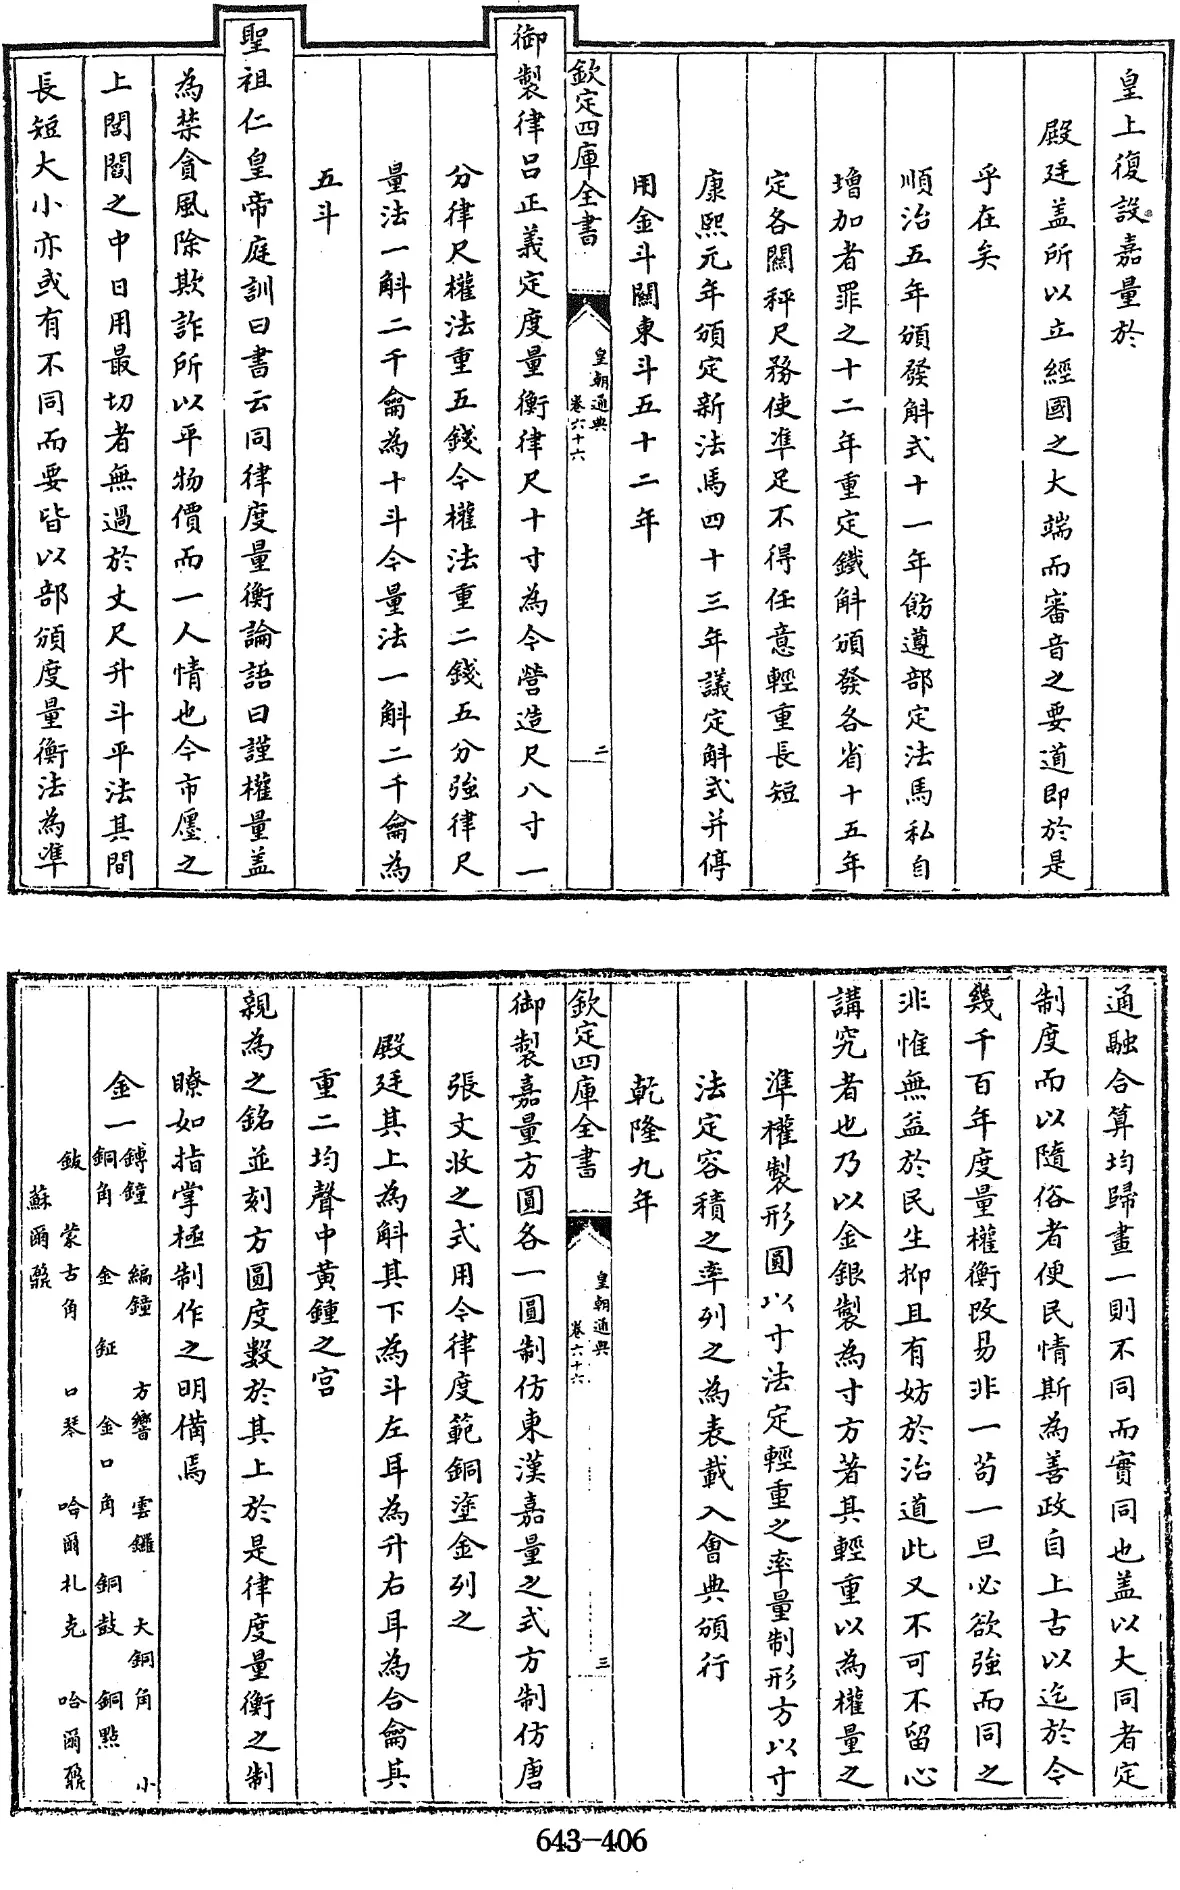 皇上復設嘉量於
殿廷盖所以立經國之大端而審音之要道即於是
乎在矣
順治五年頒發斛式十一年飭遵部定法馬私自
增加者罪之十二年重定鐵斛頒發各省十五年
定各關秤尺務使準足不得任意輕重長短
康熙元年頒定新法馬四十三年議定斛式并停
用金斗關東斗五十二年
欽定四庫全書
皇朝通典
卷六十六
二
御製律呂正義定度量衡律尺十寸為今營造尺八寸一
分律尺權法重五錢今權法重二錢五分強律尺
量法一斛二千龠為十斗今量法一斛二千龠為
五斗
聖祖仁皇帝庭訓曰書云同律度量衡論語曰謹權量盖
為禁貪風除欺詐所以平物價而一人情也今市廛之
上閭閻之中日用最切者無過於丈尺升斗平法其間
長短大小亦或有不同而要皆以部頒度量衡法為準
通融合算均歸畫一則不同而實同也盖以大同者定
制度而以隨俗者便民情斯為善政自上古以迄於今
幾千百年度量權衡改易非一苟一旦必欲強而同之
非惟無益於民生抑且有妨於治道此又不可不留心
講究者也乃以金銀製為寸方著其輕重以為權量之
準權製形圓以寸法定輕重之率量制形方以寸
法定容積之率列之為表載入會典頒行
乾隆九年
欽定四庫全書
皇朝通典
卷六十六
三
御製嘉量方圓各一圓制仿東漢嘉量之式方制仿唐
張文收之式用今律度範銅塗金列之
殿廷其上為斛其下為斗左耳為升右耳為合龠其
重二均聲中黃鍾之宮
親為之銘並刻方圓度數於其上於是律度量衡之制
瞭如指掌極制作之明備焉
金一
鎛鐘 編鐘 方響 雲鑼 大銅角 小
銅角 金鉦 金口角 銅鼓 銅點
鈸 蒙古角 口琴 哈爾札克 哈爾
蘇爾
643-406